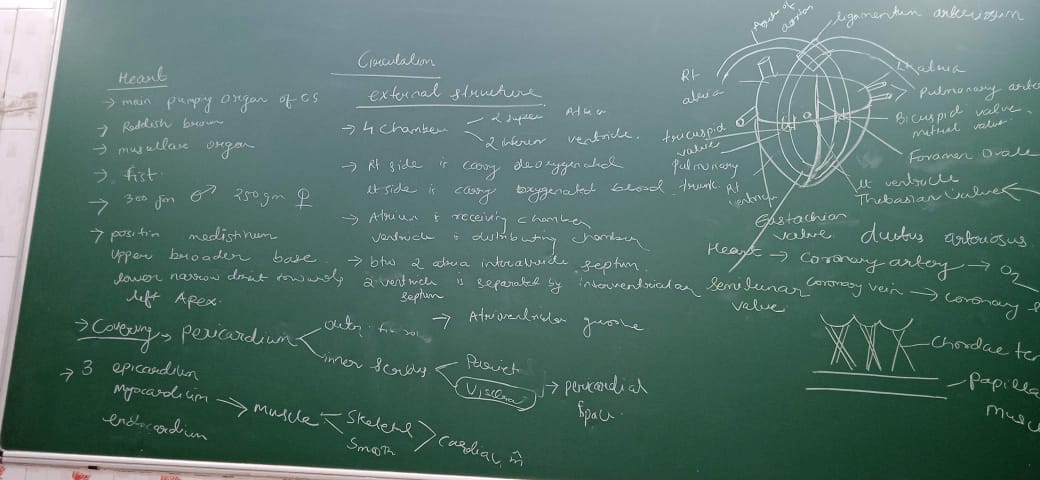 Heart
→ main pumpy organ of CS
→ Reddish brown
→ muscular organ
→ fist.
→ 300 gm ♂ 250gm ♀
→ position medistinum
upper broader base.
lower narrow downt towards
left Apex.
→ Covering → pericardium
outer
inner serous
Pariet
Viscera → pericardial
Space.
→ 3 epicardium
Myocardium → Muscle
Skeletal
Smooth
Cardiac m
endocardium
Circulation
external structure
→ 4 chamber
2 super Atrium
2 inferior ventricle.
→ Rt side is carry deoxygenated
Lt side is carry oxygenated blood.
→ Atrium is receiving chamber
ventricle is distributing chamber
→ btw 2 atria interatriude septum.
2 ventricle is separated by interventricular
septum
→ Atrioventricular groove
Arch of aorta
ligamentum arteriosum
Rt
atria
Lt atria
Pulmonary arte
Bicuspid valve
mitral valve.
tricuspid
valve
Foramen Ovale
Pulmonary
trunk. Rt
ventricle
Lt ventricle
Thebasian Valve
Eustachian
valve
ductus arteriosus
Heart → Coronary artery → O2
Coronary vein → Coronary
Semilunar
value.
Chordae ten
Papilla
Musc